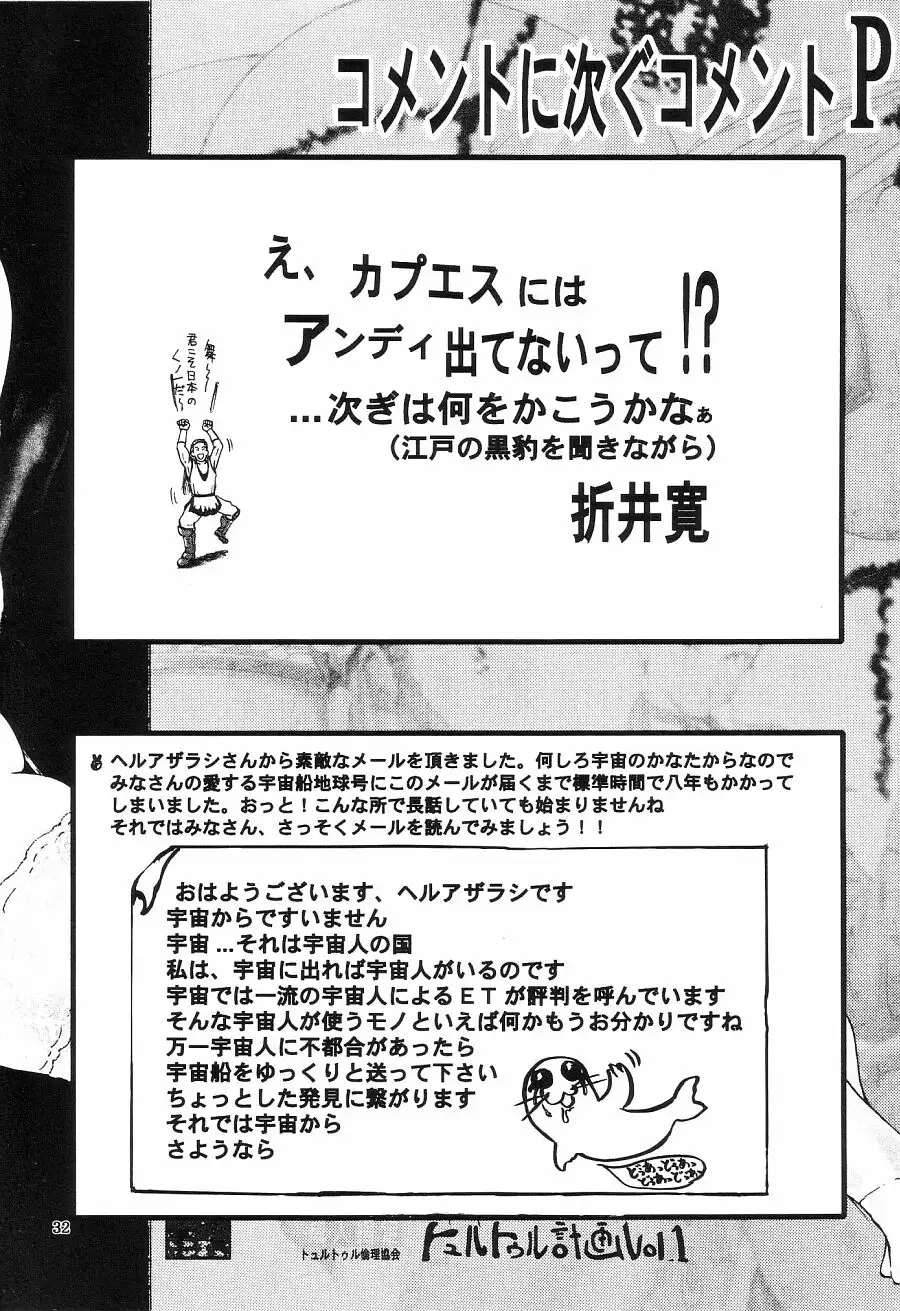 コメントに次ぐコメントP
え、カプエスには
アンディ出てないって!?
…次ぎは何をかこうかなぁ
（江戸の黒豹を聞きながら）
折井寛
舞～～
君こそ日本の
くノ一だ～
ヘルアザラシさんから素敵なメールを頂きました。何しろ宇宙のかなたからなので
みなさんの愛する宇宙船地球号にこのメールが届くまで標準時間で八年もかかって
しまいました。おっと！こんな所で長話していても始まりませんね
それではみなさん、さっそくメールを読んでみましょう！！
おはようございます、ヘルアザラシです
宇宙からですいません
宇宙…それは宇宙人の国
私は、宇宙に出れば宇宙人がいるのです
宇宙では一流の宇宙人によるＥＴが評判を呼んでいます
そんな宇宙人が使うモノといえば何かもうお分かりですね
万一宇宙人に不都合があったら
宇宙船をゆっくりと送って下さい
ちょっとした発見に繋がります
それでは宇宙から
さようなら
どぅあっどぅあっ
どぅあっどぅあっ
32
トュルトゥル倫理協会
トュルトゥル計画Vol1